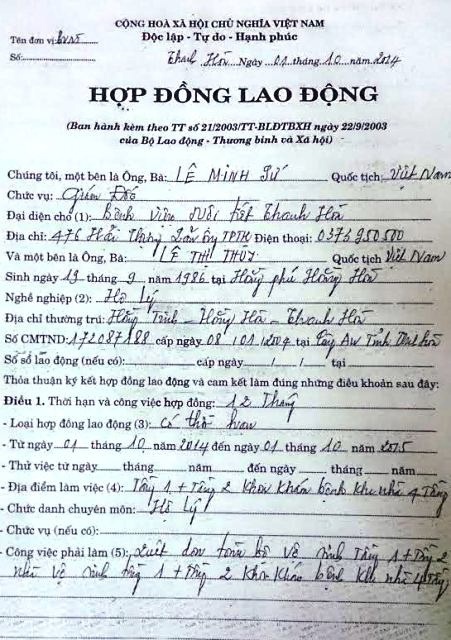 CỘNG HOÀ XÃ HỘI CHỦ NGHĨA VIỆT NAM
Tên đơn vị: Độc lập - Tự do - Hạnh phúc
Số: Thanh Hóa Ngày 01 tháng 10 năm 2014
HỢP ĐỒNG LAO ĐỘNG
(Ban hành kèm theo TT số 21/2003/TT-BLĐTBXH ngày 22/9/2003
của Bộ Lao động - Thương binh và Xã hội)
Chúng tôi, một bên là Ông, Bà: LÊ MINH SỨ Quốc tịch: Việt Nam
Chức vụ: Giám Đốc
Đại diện cho (1): Bệnh Viện Nội tiết Thanh Hóa
Địa chỉ: 476 Hải Thượng Lãn Ông TPTH Điện thoại: 0376950500
Và một bên là Ông, Bà: LÊ THỊ THUÝ Quốc tịch Việt Nam
Sinh ngày 19 tháng 9 năm 1986 tại Hoằng phú Hoằng Hóa
Nghề nghiệp (2): Hộ Lý
Địa chỉ thường trú: Hoằng Trinh - Hoằng Hóa - Thanh Hóa
Số CMTND: 172087188 cấp ngày 08/01/2004 tại Công An Tỉnh Thanh hóa
Số sổ lao động (nếu có): cấp ngày / / tại
Thỏa thuận ký kết hợp đồng lao động và cam kết làm đúng những điều khoản sau đây:
Điều 1. Thời hạn và công việc hợp đồng: 12 Tháng
- Loại hợp đồng lao động (3): Có thời hạn
- Từ ngày 01 tháng 10 năm 2014 đến ngày 01 tháng 10 năm 2015
- Thử việc từ ngày tháng năm đến ngày tháng năm
- Địa điểm làm việc (4): Tầng 1 + Tầng 2 Khoa Khám bệnh khu nhà 4 Tầng
- Chức danh chuyên môn: Hộ Lý
- Chức vụ (nếu có):
- Công việc phải làm (5): Quét dọn toàn bộ Vệ sinh Tầng 1 + Tầng 2
nhà Vệ sinh tầng 1 + Tầng 2 Khoa Khám bệnh Khu nhà 4 Tầng